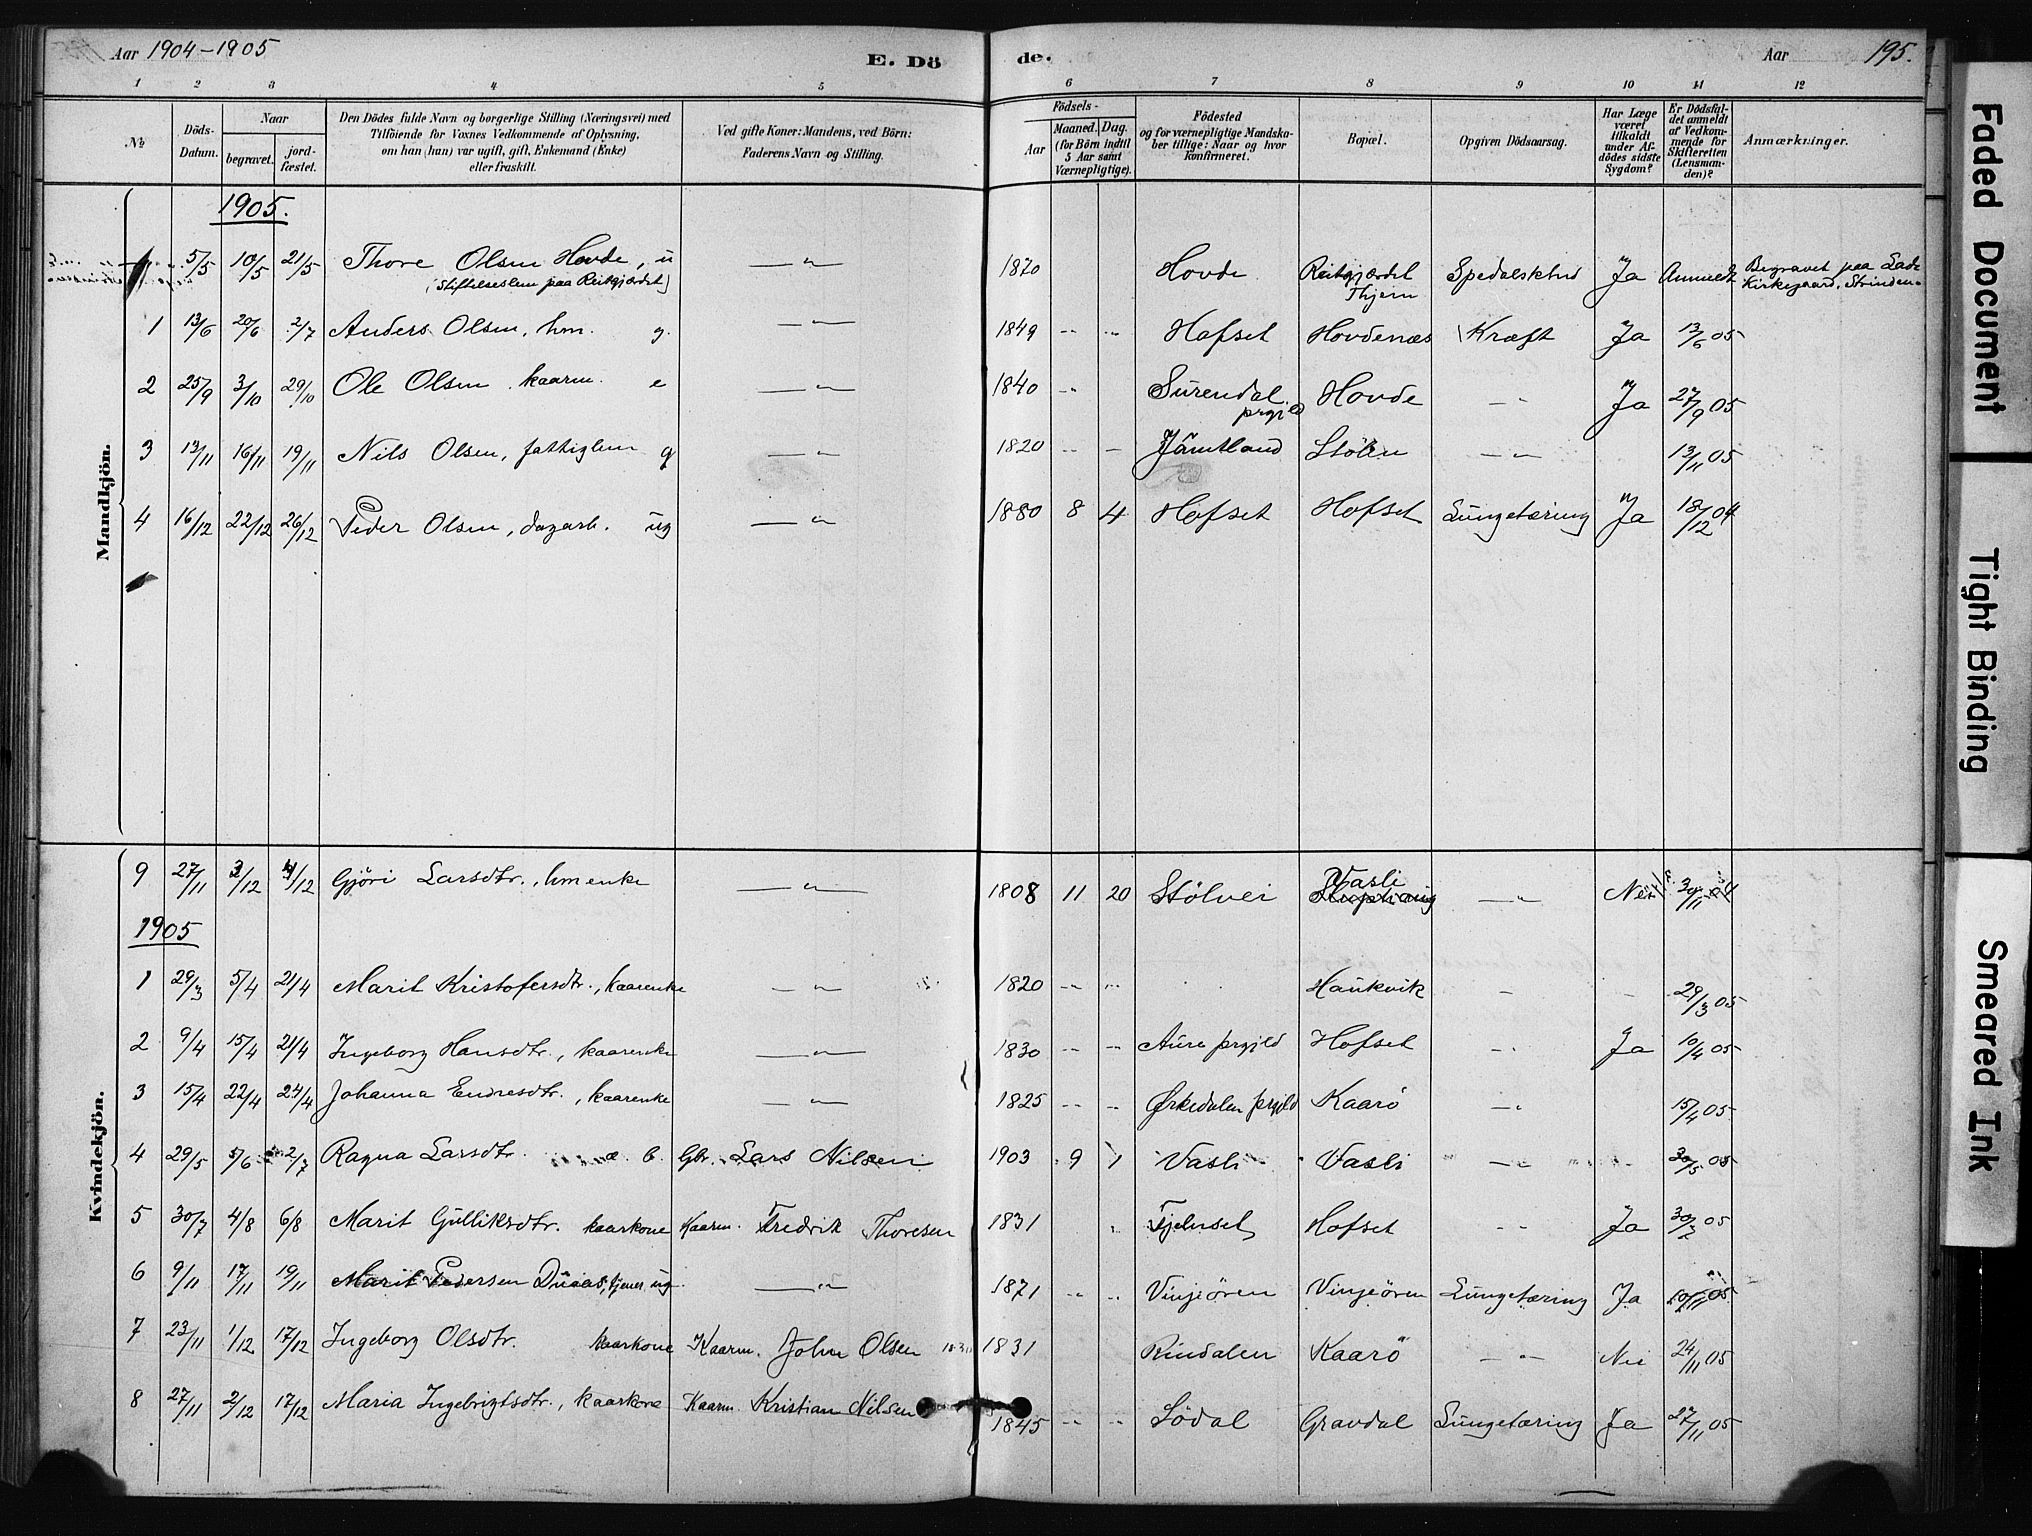 Aar 1904-1905 E. Dö de. Aar 195.
1 2 3 4 5 6 7 8 9 10 11 12
№ Döds-Datum. Naar begravet. jordfæstet. Den Dödes fulde Navn og borgerlige Stilling (Næringsvei) med Tilföiende for Voxnes Vedkommende af Oplysning, om han (hun) var ugift, gift, Enkemand (Enke) eller fraskilt. Ved gifte Koner: Mandens, ved Börn: Faderens Navn og Stilling. Födsels- Aar Maaned. Dag. (for Börn indtil 5 Aar samt Værnepligtige). Födested og for værnepligtige Mandskaber tillige: Naar og hvor konfirmeret. Bopæl. Opgiven Dödsaarsag. Har Læge været tilkaldt under Afdödes sidste Sygdom? Er Dödsfaldet anmeldt af Vedkommende for Skifteretten (Lensmanden)? Anmærkninger.
Mandkjön.
1905.
5/5 10/5 21/5 Thore Olsen Hovde, u — " — 1870 Hovde Reitgjærdet Spedalskhed Ja Anmeldt Begravet paa Lade
(Stiftelseslem paa Reitgjærdet) Thjem Kirkegaard, Strinden.
1 13/6 20/6 2/7 Anders Olsen, hm. g. — " — 1849 " " Hafset Hovdenæs Kræft Ja 13/6 05
2 25/9 3/10 29/10 Ole Olsen kaarm. e — " — 1840 " Surendal prgjld Hovde — " Ja 27/9 05
3 13/11 16/11 19/11 Nils Olsen, fattiglem g — " — 1820 " — Jämtland Stölen — " — 13/11 05
4 16/12 22/12 26/12 Peder Olsen, dagarb. ug — " — 1880 8 4 Hofset Hofset Lungetæring Ja 18/12 04
Kvindekjön.
9 27/11 3/12 4/12 Gjöri Larsdtr., hmenke — " — 1808 11 20 Stölvei Vasli — " Nei 30/11 04
1905
1 29/3 5/4 21/4 Marit Kristofersdtr., kaarenke — " — 1820 " " Haukvik — — 29/3 05
2 9/4 15/4 21/4 Ingeborg Hansdtr., kaarenke — " — 1830 " " Aure prgjld Hofset — " Ja 10/4 05
3 15/4 22/4 24/4 Johanna Endresdtr., kaarenke — " — 1825 " " Ørkedalen prgjld Kaarö — " 15/4 05
4 29/5 5/6 2/7 Ragna Larsdtr. æ. b. Gbr. Lars Nilsen 1903 9 1 Vasli Vasli — " — 30/5 05
5 30/7 4/8 6/8 Marit Gulliksdtr. kaarkone Kaarm. Fredrik Thoresen 1831 " Fjelnset Hofset — " Ja 30/7 05
6 9/11 17/11 19/11 Marit Pedersen Duaas, tjener, ug. — " — 1871 " " Vinjeören Vinjeören Lungetæring Ja 10/11 05
7 23/11 1/12 17/12 Ingeborg Olsdtr. kaarkone Kaarm. John Olsen 1831 Rindalen Kaarö — " — Nei 24/11 05
8 27/11 2/12 17/12 Maria Ingebrigtsdtr., kaarkone Kaarm. Kristian Nilsen 1845 " " Södal Gravdal Lungetæring Ja 27/11 05
Faded Document
Tight Binding
Smeared Ink